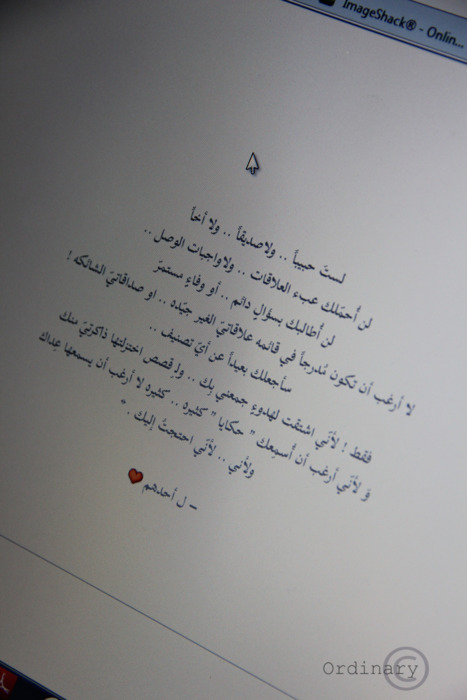 ImageShack® - Onlin...
لستَ حبيباً .. ولا صديقاً .. ولا أخاً
لن أُحمّلك عبء العلاقات .. ولا واجبات الوصل ..
لن أُطالبك بسؤالٍ دائم .. أو وفاءٍ مستمرّ
لا أرغب أن تكون مُدرجاً في قائمه علاقاتيَ الغير جيّده .. او صداقاتيَ الشائكه !
سأجعلك بعيداً عن أيّ تصنيف ..
فقط ! لأنّي اشتقت لهدوءٍ جمعني بِك .. ولِ قصص اختزلتها ذاكرتيَ منك
وَ لأنّي أرغب أن أُسمِعك " حكايا " كثيره .. كثيره لا أرغب أن يسمعها عِداك
ولأني .. لأنّي احتجتُ إليك . "
– ل أحدهم
Ordinary
©